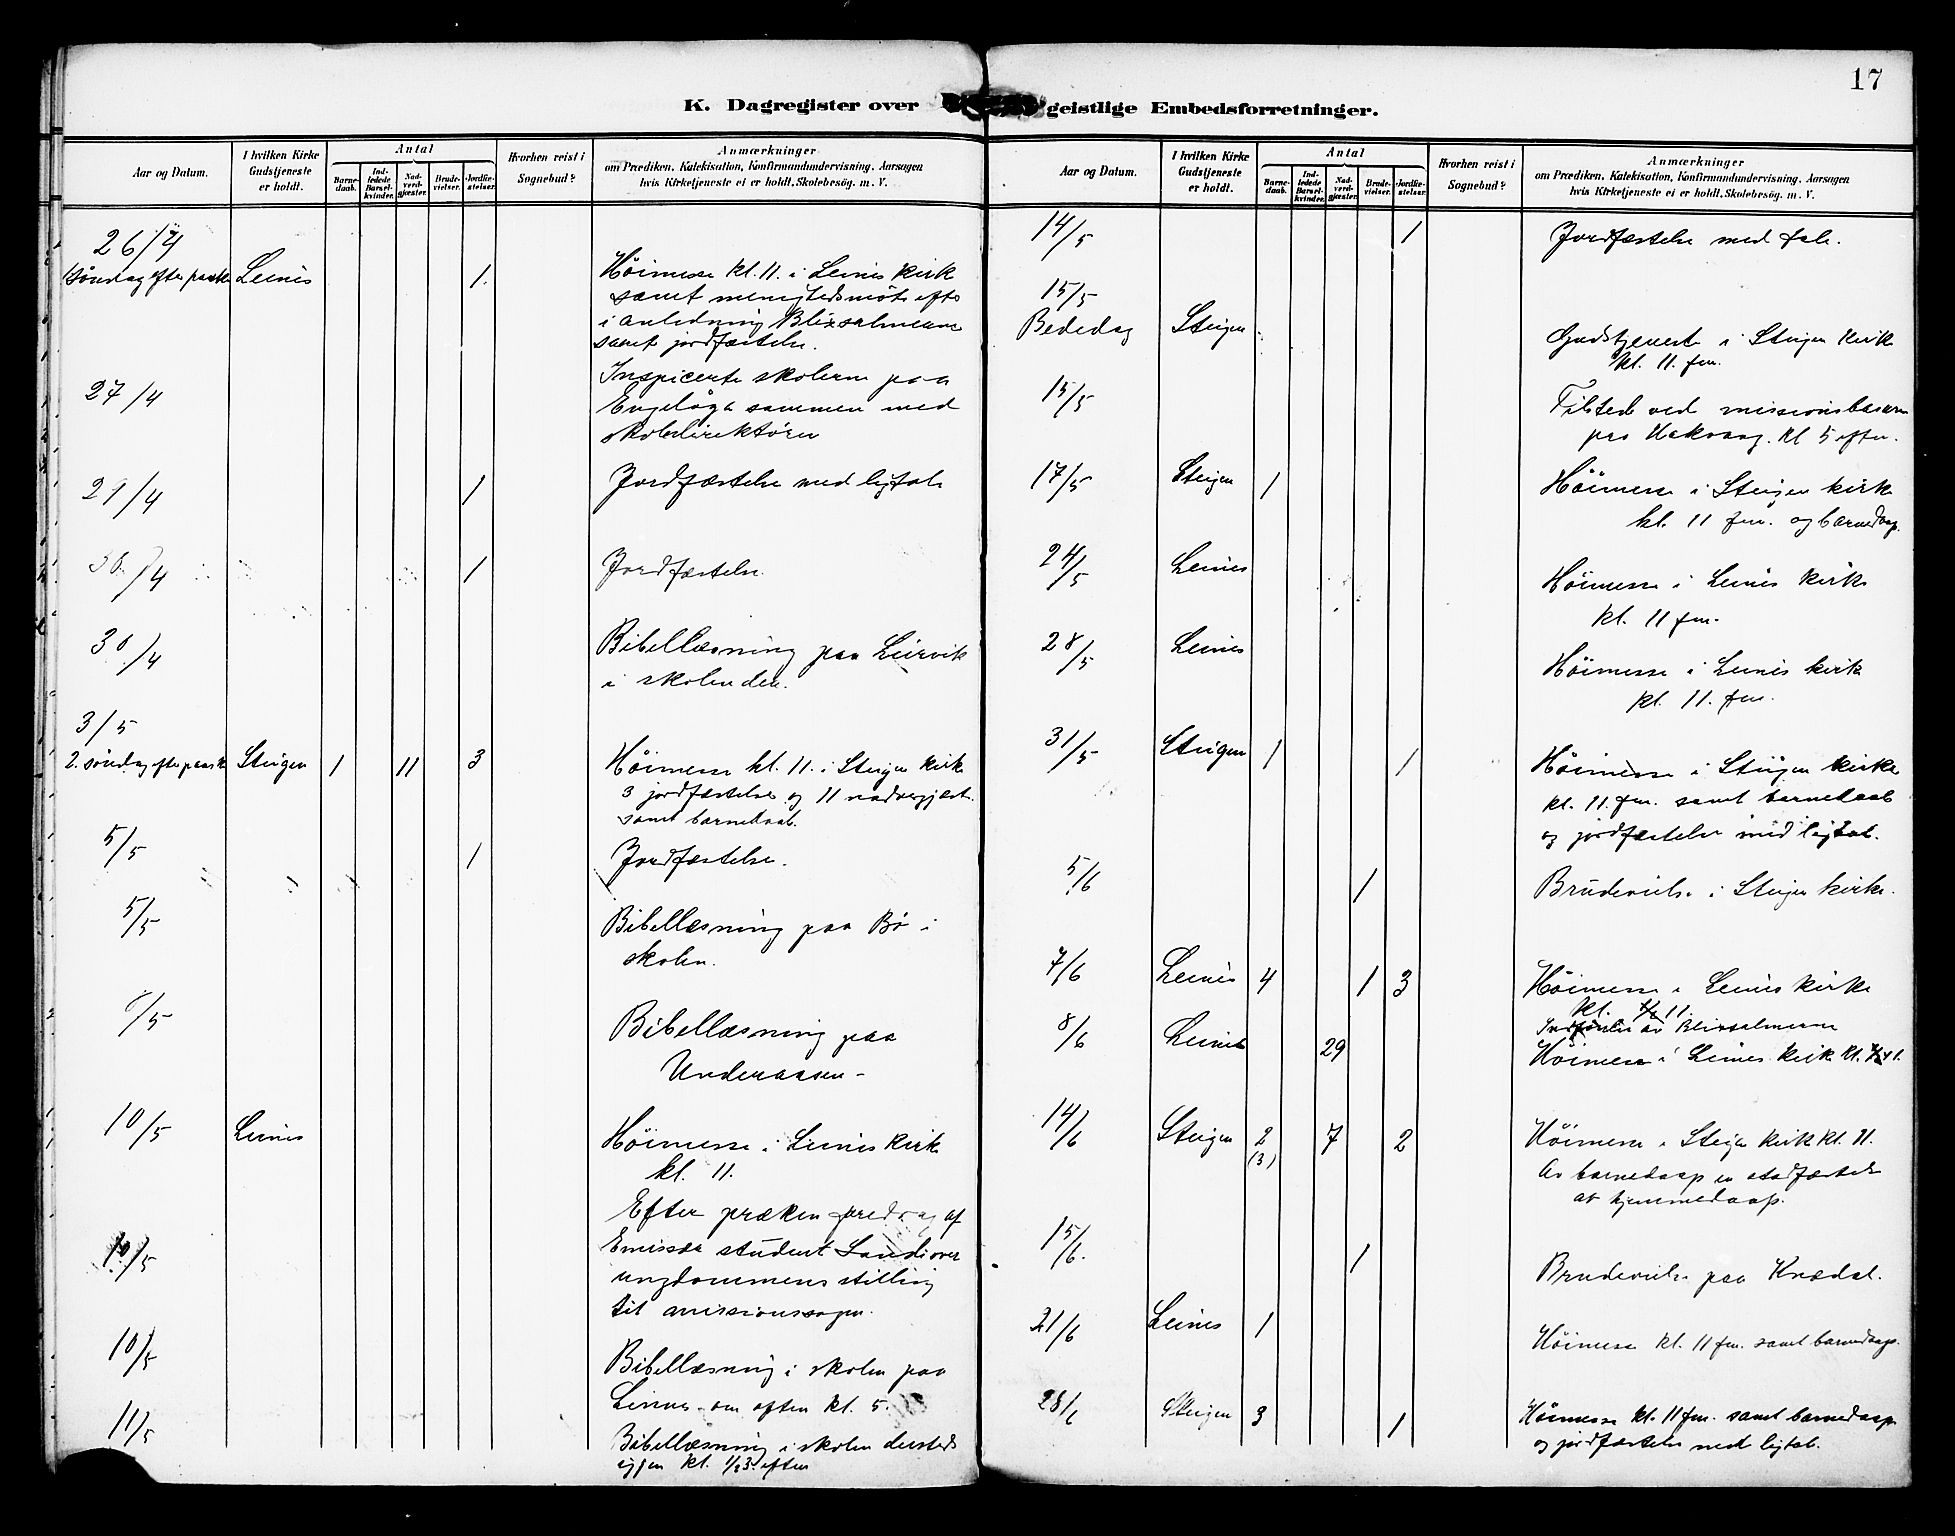 17
K. Dagregister over geistlige Embedsforretninger.
Aar og Datum.
I hvilken Kirke Gudstjeneste er holdt.
Antal
Barnedaab.
Indledede Barselkvinder.
Nadverdgjæster.
Brudevielser.
Jordfæstelser.
Hvorhen reist i Sognebud?
Anmærkninger
om Prædiken, Katekisation, Konfirmandundervisning, Aarsagen
hvis Kirketjeneste ei er holdt, Skolebesög. m. V.
26/4
1 söndag efter paaske Leines 1. Höimesse kl. 11. i Leines kirke
samt menighedsmöte efter
i anledning Blixsalmerne
samt jordfæstelse.
27/4 Inspicerte skolerne paa
Engelöya sammen med
skoledirektören
29/4 1 Jordfæstelse med ligtale
30/4 1 Jordfæstelse.
30/4 Bibellæsning paa Leirvik
i skolen der.
3/5
2. söndag efter paaske Steigen 1 11 3 Höimesse kl. 11. i Steigen kirke
3 jordfæstelser og 11 nadvergjæst.
samt barnedaab.
5/5 1 Jordfæstelse.
5/5 Bibellæsning paa Bö i
skolen.
6/5 Bibellæsning paa
Underaasen -
10/5 Leines Höimesse i Leines kirke
kl. 11.
Efter præken foredrag af
10/5 Emissær student Sande over
ungdommens stilling
til missionssagen.
10/5 Bibellæsning i skolen paa
Leines om aften kl. 5.
11/5 Bibellæsning i skolen dersteds
igjen kl. 1/2 3 efter
Aar og Datum.
I hvilken Kirke Gudstjeneste er holdt.
Antal
Barnedaab.
Indledede Barselkvinder.
Nadverdgjæster.
Brudevielser.
Jordfæstelser.
Hvorhen reist i Sognebud?
Anmærkninger
om Prædiken, Katekisation, Konfirmandundervisning, Aarsagen
hvis Kirketjeneste ei er holdt, Skolebesög. m. V.
14/5 1 Jordfæstelse med tale.
15/5
Bededag Steigen Gudstjeneste i Steigen kirke
kl. 11. fm.
15/5 Tilstede ved missionsbasaren
paa Hakvaag. kl 5 efter.
17/5 Steigen 1 Höimesse i Steigen kirke
kl. 11 fm. og barnedaap.
24/5 Leines Höimesse i Leines kirke
kl. 11 fm.
28/5 Leines Höimesse i Leines kirke
kl. 11. fm.
31/5 Steigen 1 1 Höimesse i Steigen kirke
kl. 11. fm. samt barnedaab
og jordfæstelse med ligtale.
5/6 1 Brudevielse i Steigen kirke.
7/6 Leines 4 1 3 Höimesse i Leines kirke
kl. 11.
av Blixsalmerne
8/6 Leines 29 Höimesse i Leines kirke kl. 11.
14/6 Steigen 2 (3) 7 2 Höimesse i Steigen kirke kl. 11.
Av barnedaap en stadfæstelse
av hjemmedaap.
15/6. 1 Brudevielse paa Knædal.
21/6 Leines 1 Höimesse kl. 11 fm. samt barnedaap.
28/6 Steigen 3 1 Höimesse kl. 11 fm. samt barnedaap
og jordfæstelse med ligtale.